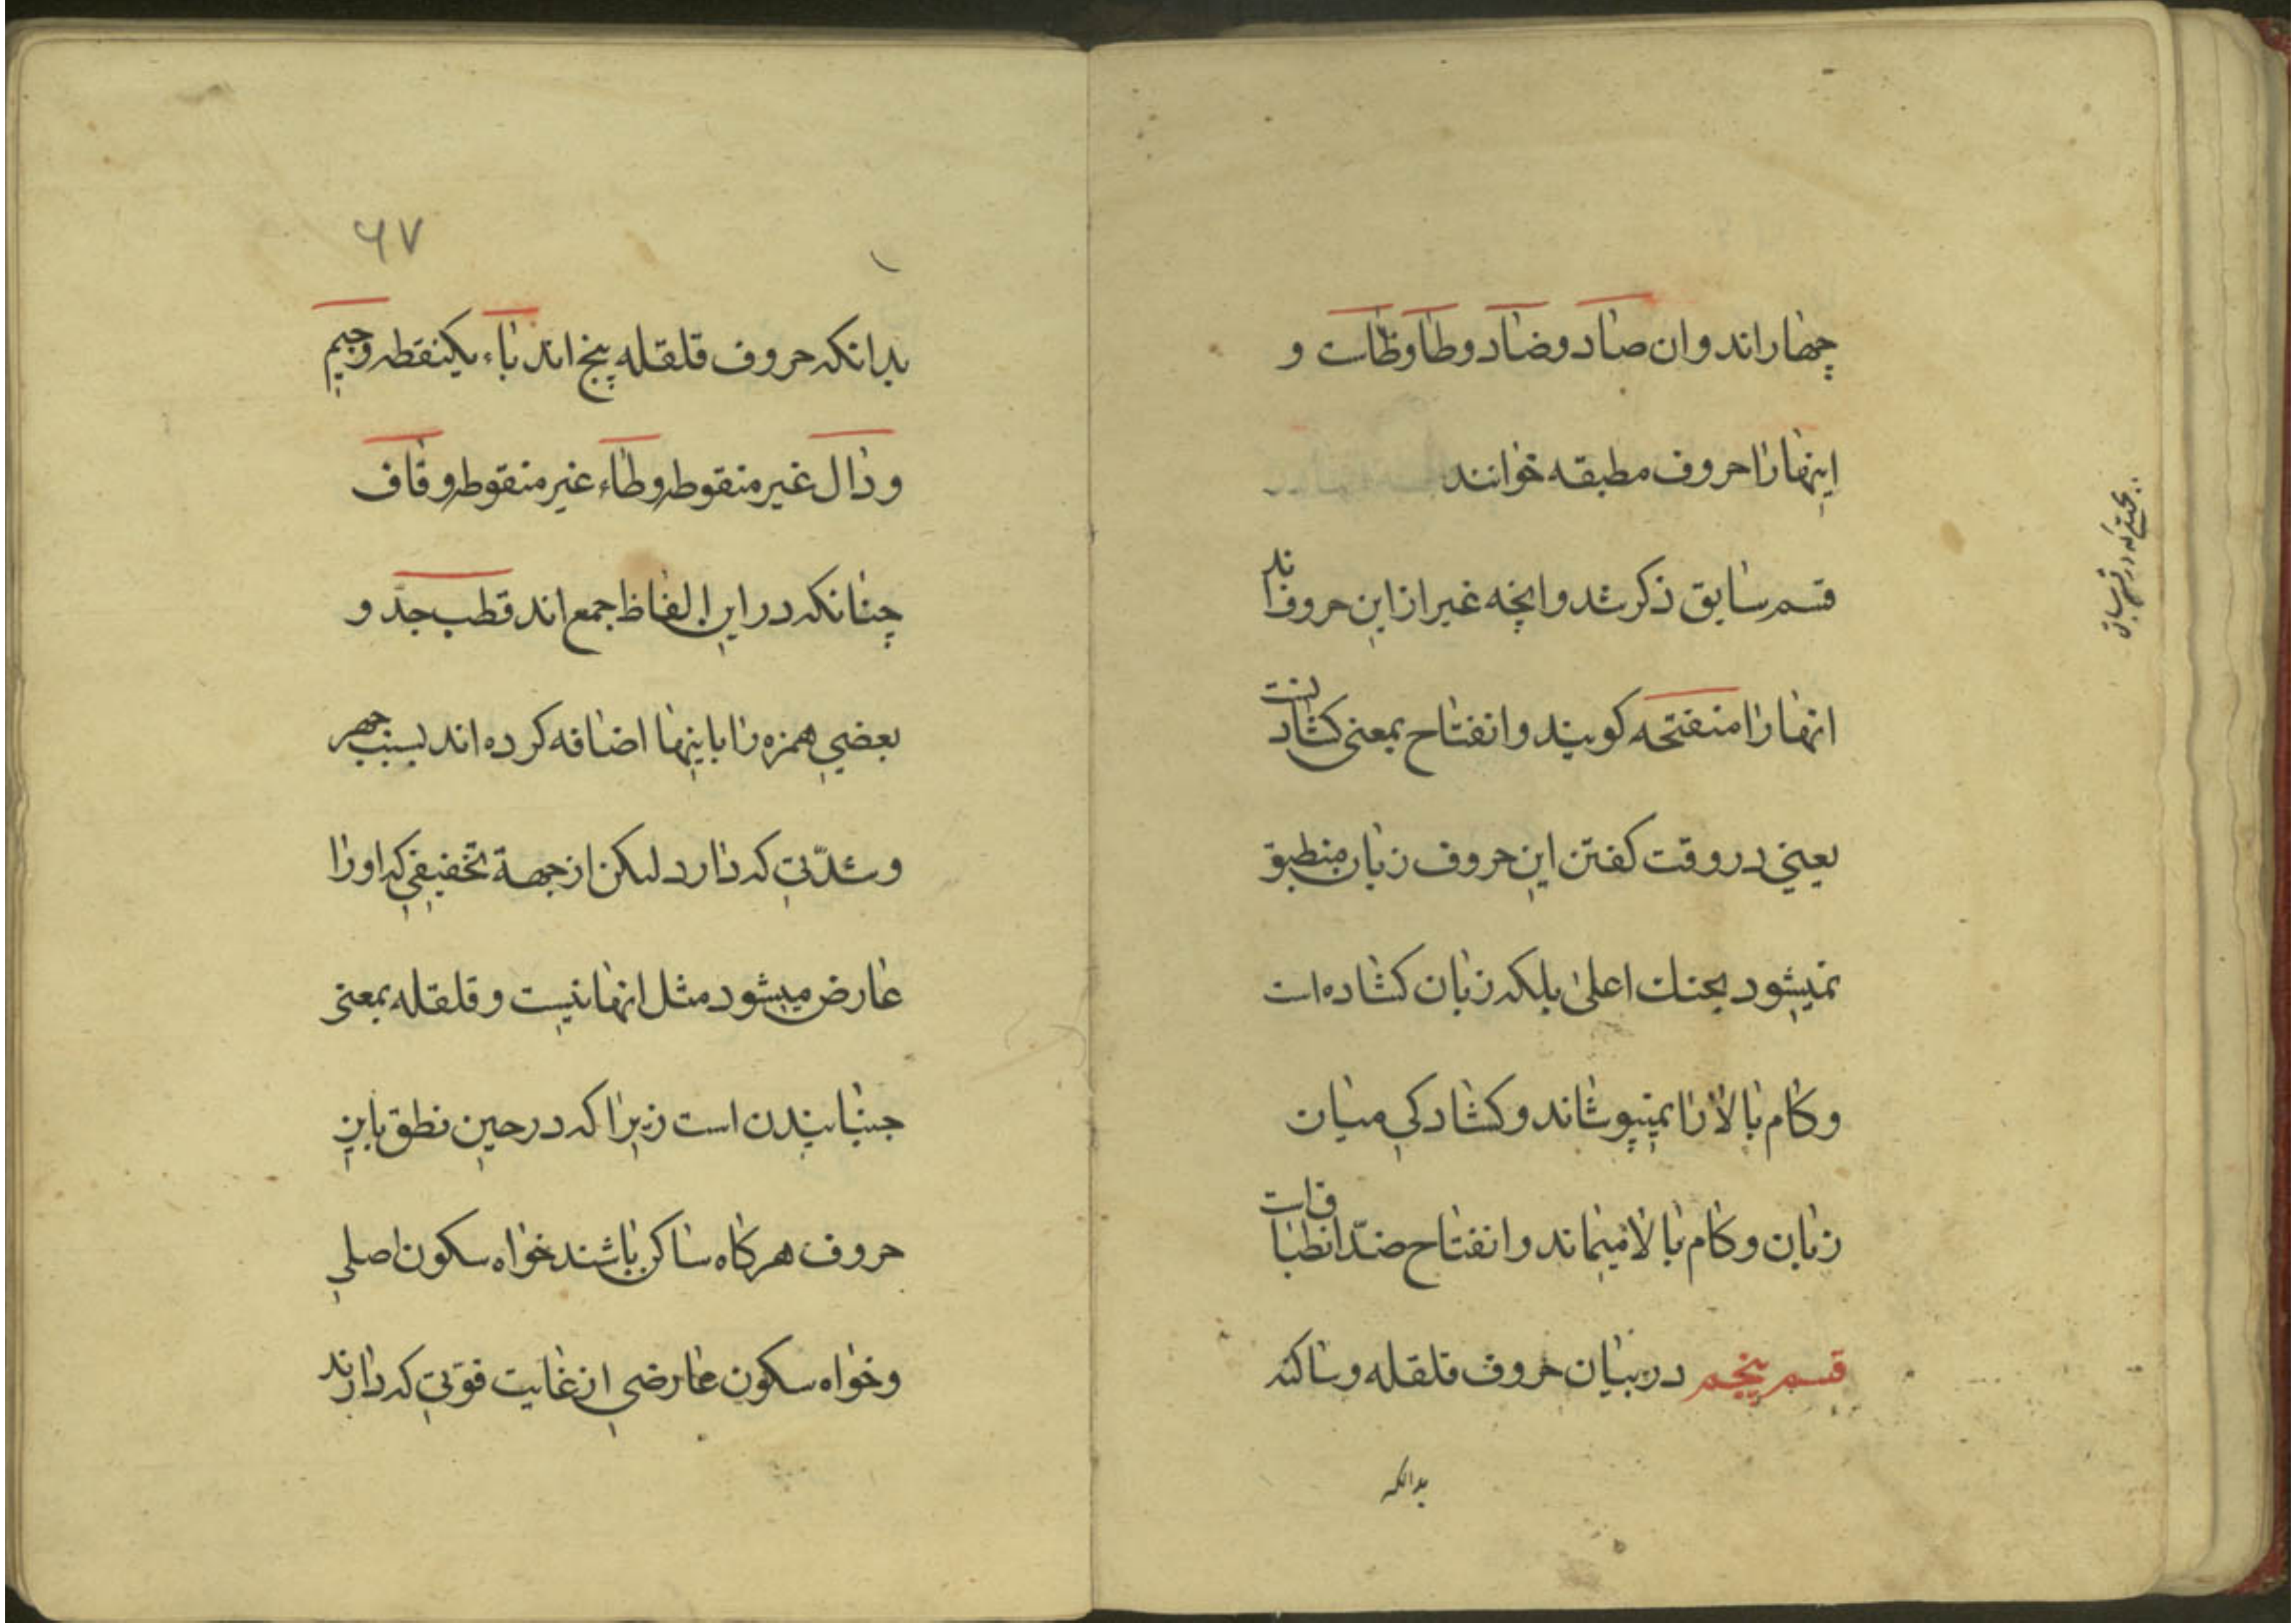 چهاراند و ان صاد و ضاد و طا و ظاست و
اینها را حروف مطبقه خوانند
قسم سابق ذکر شد و انچه غیر از این حروف اند
انها را منفتحه کویند و انفتاح بمعنی کشادنست
یعنی در وقت کفتن این حروف زبان منطبق
نمیشود بحنك اعلی بلکه زبان کشاده است
و کام بالا را نمیپوشاند و کشادکی میان
زبان و کام بالا میماند و انفتاح ضدّ انطباق است
قسم پنجم در بیان حروف قلقله و ساکنه
بدانکه
بجهتی که در قسم سابق
۶۷
بدانکه حروف قلقله پنج اند باء یکنقطه و جیم
و دال غیر منقوطه و طاء غیر منقوطه و قاف
چنانکه در این الفاظ جمع اند قطب جدّ و
بعضی همزه را باینها اضافه کرده اند بسبب جهر
و شدّتی که دارد لیکن از جهة تخفیفی که او را
عارض میشود مثل انها نیست و قلقله بمعنی
جنبانیدن است زیرا که در حین نطق باین
حروف هرکاه ساکن باشند خواه سکون اصلی
و خواه سکون عارضی از غایت قوّتی که دارند